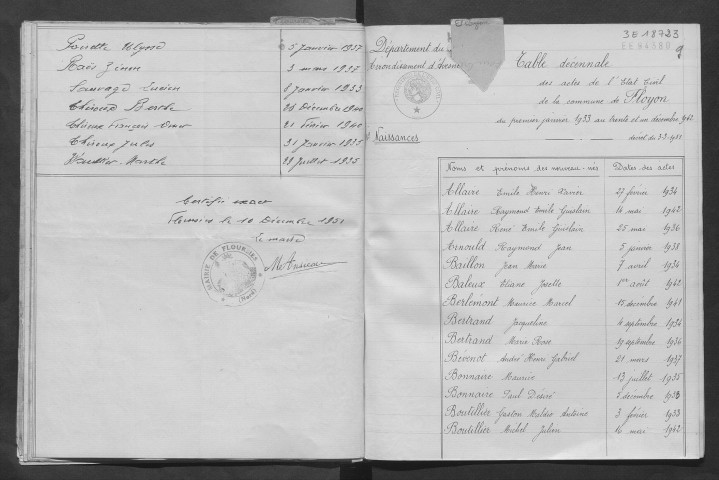 Ulysse 5 janvier 1937
Raës 3 1937
Sauvage Lucien 8 janvier 1933
Berthe 28 décembre 1940
François Omer 21 février 1940
Jules 31 janvier 1935
Marthe 28 juillet 1935
Certifié exact
le 10 Décembre 1951
Le maire
MAIRIE DE FLOURSIES
(Nord)
3 E 18723
9
Département du
Arrondissement d'Avesnes
Table décennale
des actes de l'Etat Civil
de la commune de Floyon
du premier janvier 1933 au trente et un décembre 1942
Naissances
Noms et prénoms des nouveau-nés Dates des actes
Allaire Emile Henri Xavier 27 février 1934
Allaire Raymond Emile Guislain 14 mai 1942
Allaire René Emile Guislain 25 mai 1936
Arnould Raymond Jean 5 janvier 1938
Baillon Jean Marie 7 avril 1934
Baleux Eliane Joselle 1er août 1942
Berlemont Maurice Marcel 15 décembre 1941
Bertrand Jacqueline 4 septembre 1934
Bertrand Marie Rose 19 septembre 1936
Bévenot André Henri Gabriel 21 mars 1937
Bonnaire Maurice 13 juillet 1935
Bonnaire Paul Désiré décembre 1933
Boutillier Gaston Antoine 3 février 1933
Boutillier Michel Julien 16 mai 1942